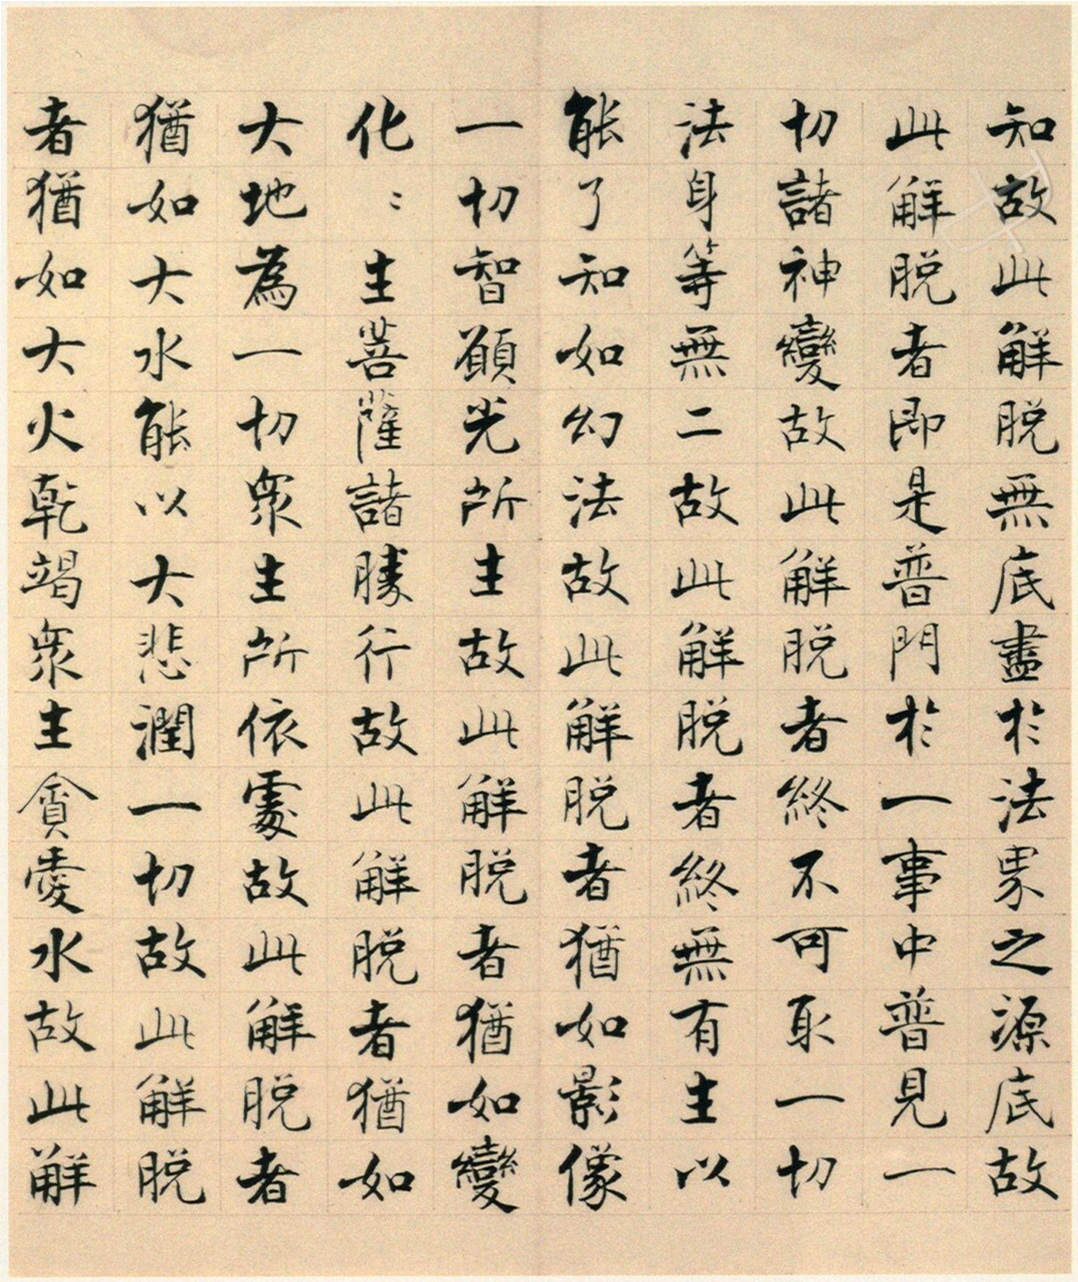 知故此解脱無底盡於法界之源底故
此解脱者即是普門於一事中普見一
切諸神變故此解脱者終不可取一切
法身等無二故此解脱者終無有生以
能了知如幻法故此解脱者猶如影像
一切智願光所生故此解脱者猶如變
化〻生菩薩諸勝行故此解脱者猶如
大地為一切衆生所依處故此解脱者
猶如大水能以大悲潤一切故此解脱
者猶如大火乾竭衆生貪愛水故此解